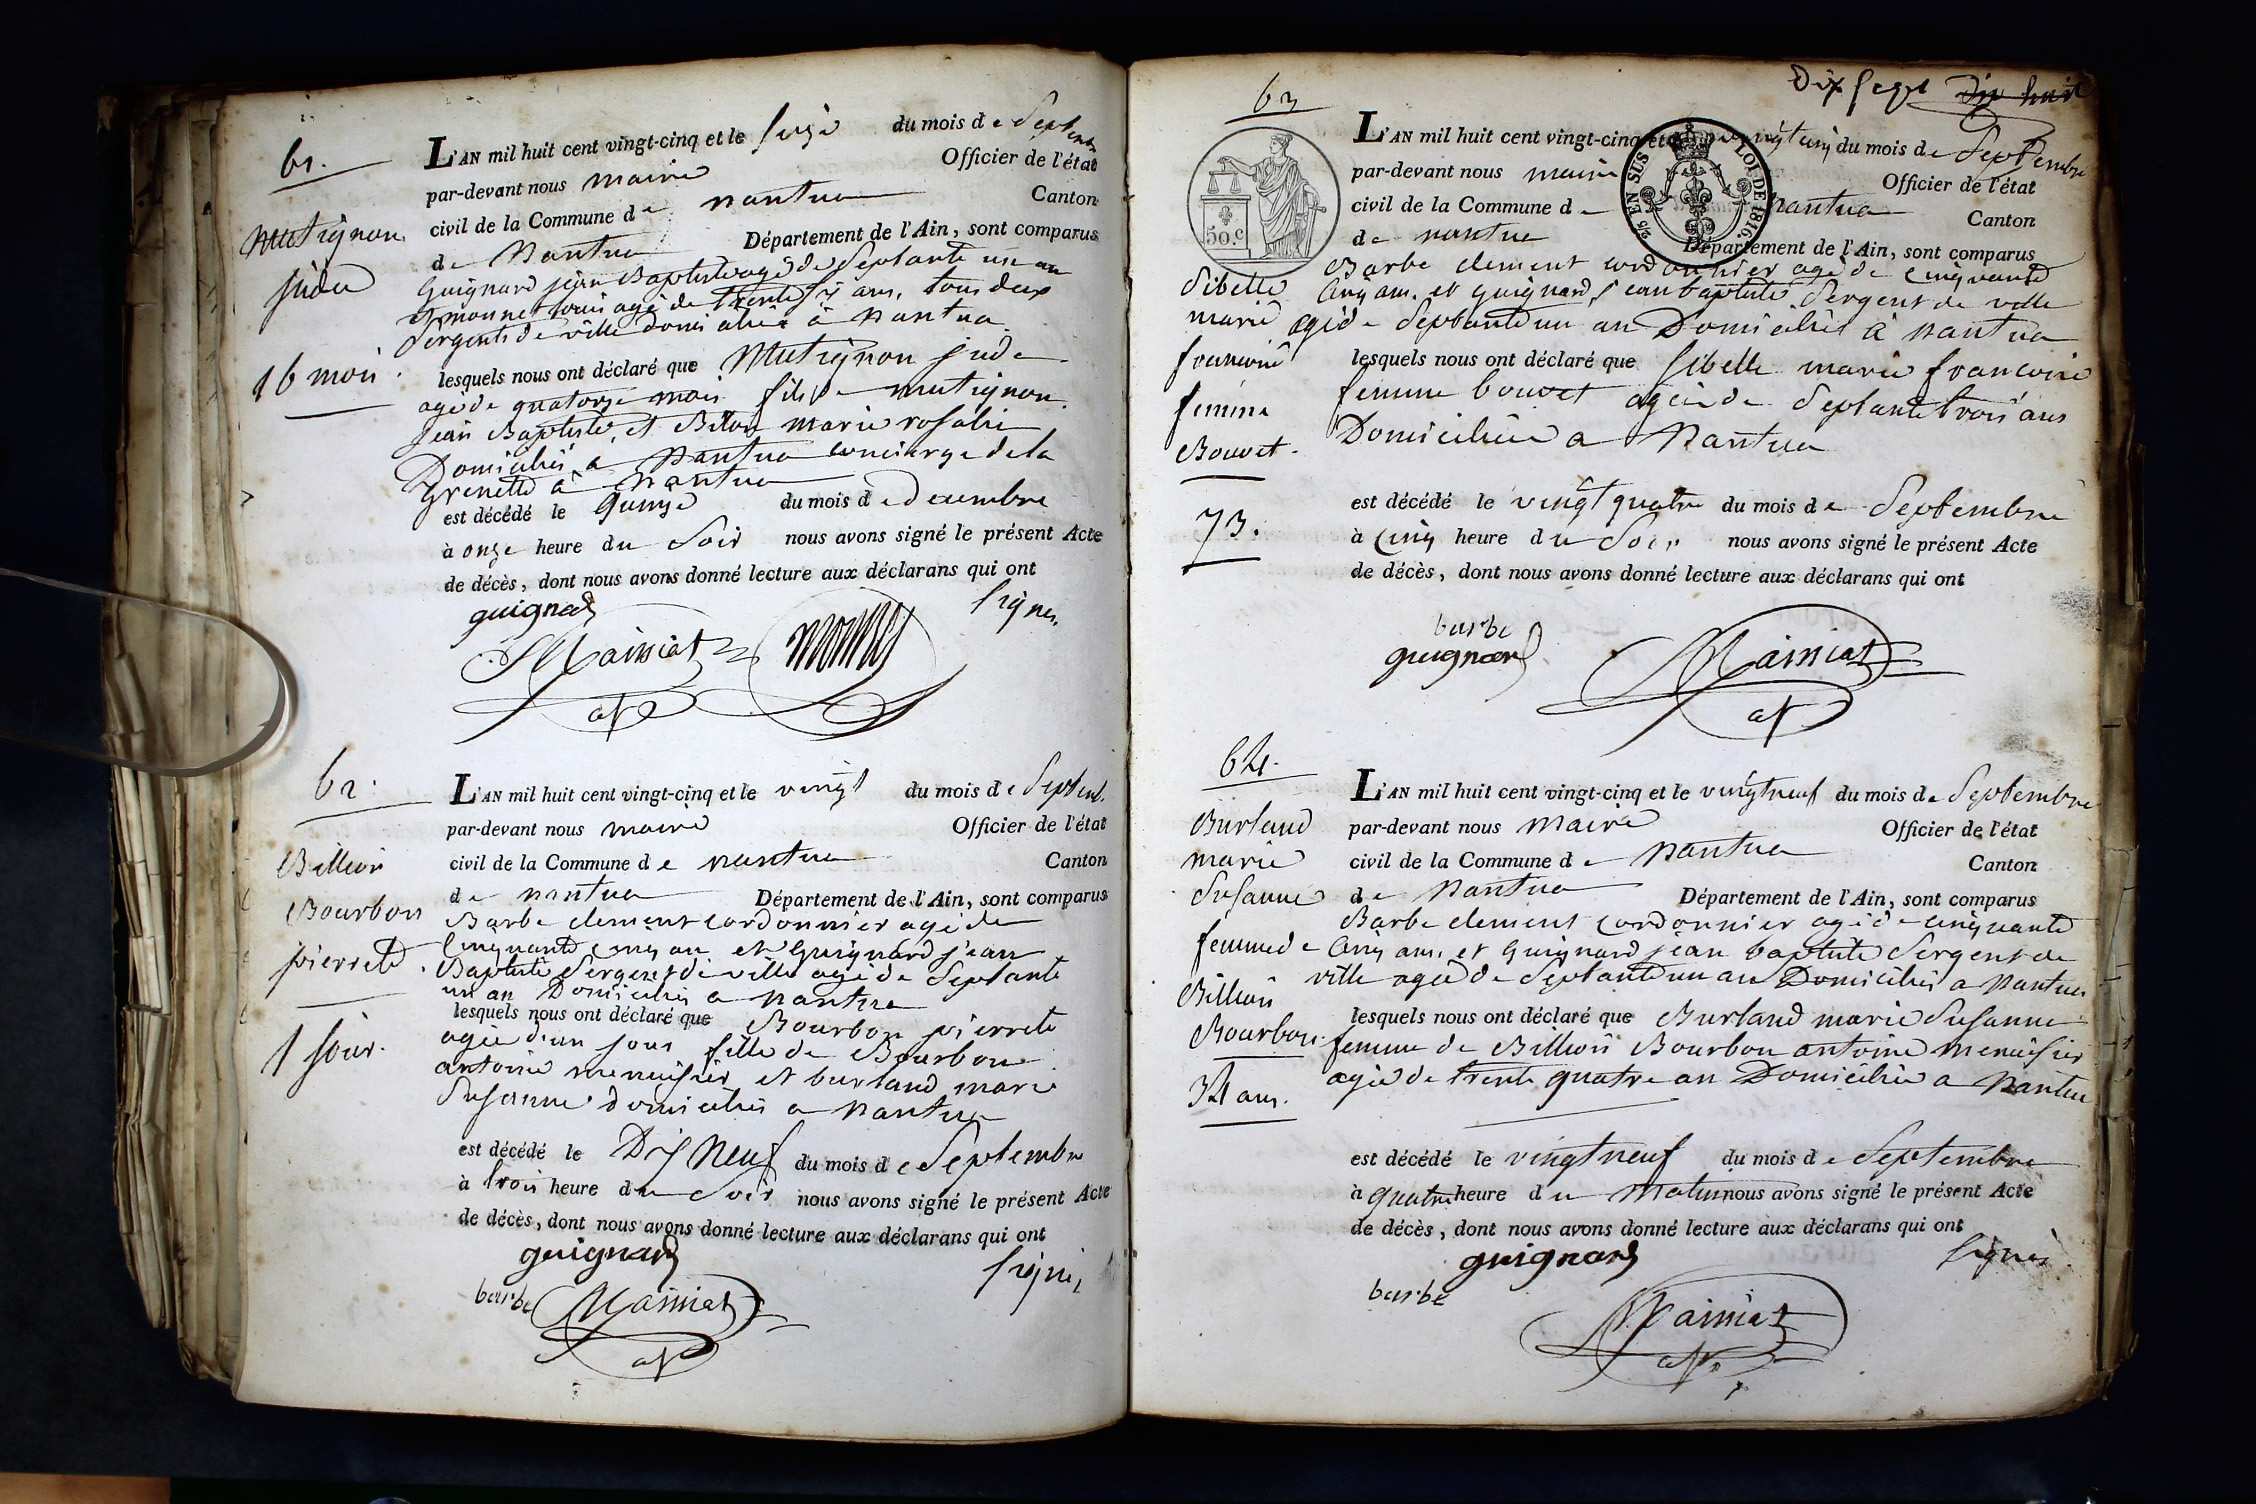 61.
Mutignon
jude
16 mois.
L'AN mil huit cent vingt-cinq et le seize du mois de Septembre
par-devant nous maire Officier de l'état
civil de la Commune de nantua Canton
de Nantua Département de l'Ain, sont comparus
Guignard jean Baptiste agé de Septante un an
et monnet louis agé de trente six ans, tous deux
Sergents de ville domiciliés à Nantua
lesquels nous ont déclaré que Mutignon jude
agé de quatorze mois fils de mutignon
jean Baptiste, et Billon marie rosalie
Domiciliés a Nantua concierge de la
Grenette à Nantua
est décédé le quinze du mois de decembre
à onze heure du Soir nous avons signé le présent Acte
de décès, dont nous avons donné lecture aux déclarans qui ont
signés.
guignard
Mainiat monnet
62.
Billion
Bourbon
pierrete.
1 jour.
L'AN mil huit cent vingt-cinq et le vingt du mois de Septemb.
par-devant nous maire Officier de l'état
civil de la Commune de nantua Canton
de nantua Département de l'Ain, sont comparus
Barbe clement cordonnier agé de
Cinquante cinq an et Guignard jean
Baptiste Sergent de ville agé de Septante
un an Domiciliés a nantua
lesquels nous ont déclaré que Bourbon pierrete
agée d'un jour fille de Bourbon
antoine menuisier et burland marie
Susanne domiciliés a nantua
est décédé le Dix Neuf du mois de Septembre
à trois heure du Soir nous avons signé le présent Acte
de décès, dont nous avons donné lecture aux déclarans qui ont
signés
guignard
barbe Mainiat
Dix sept Dix huit
63
50.c
2/5 EN SUS LOI DE 1816.
Sibelle
marie
francoise
femme
Bouvet.
73.
L'AN mil huit cent vingt-cinq et le vingt cinq du mois de Septembre
par-devant nous maire Officier de l'état
civil de la Commune de Nantua Canton
de nantua Département de l'Ain, sont comparus
Barbe clement cordonnier agé de cinquante
Cinq ans. et guignard jean baptiste Sergent de ville
agé de Septante un an Domiciliés à nantua
lesquels nous ont déclaré que Sibelle marie francoise
femme bouvet agée de Septante trois ans
Domiciliée a Nantua
est décédé le vingt quatre du mois de Septembre
à Cinq heure du Soir nous avons signé le présent Acte
de décès, dont nous avons donné lecture aux déclarans qui ont
barbe
guignard Mainiat
64.
Burland
marie
Susanne
femme de
Billion
Bourbon
34 ans.
L'AN mil huit cent vingt-cinq et le vingt neuf du mois de Septembre
par-devant nous Maire Officier de l'état
civil de la Commune de Nantua Canton
de Nantua Département de l'Ain, sont comparus
Barbe clement Cordonnier agé de cinquante
Cinq ans, et Guignard jean baptiste Sergent de
ville agé de Septante un an Domiciliés a Nantua
lesquels nous ont déclaré que Burland marie Susanne
femme de Billion Bourbon antoine menuisier
agée de trente quatre an Domiciliée a Nantua
est décédé le vingt neuf du mois de Septembre
à quatre heure du Matin nous avons signé le présent Acte
de décès, dont nous avons donné lecture aux déclarans qui ont
signés
guignard
barbe
Mainiat